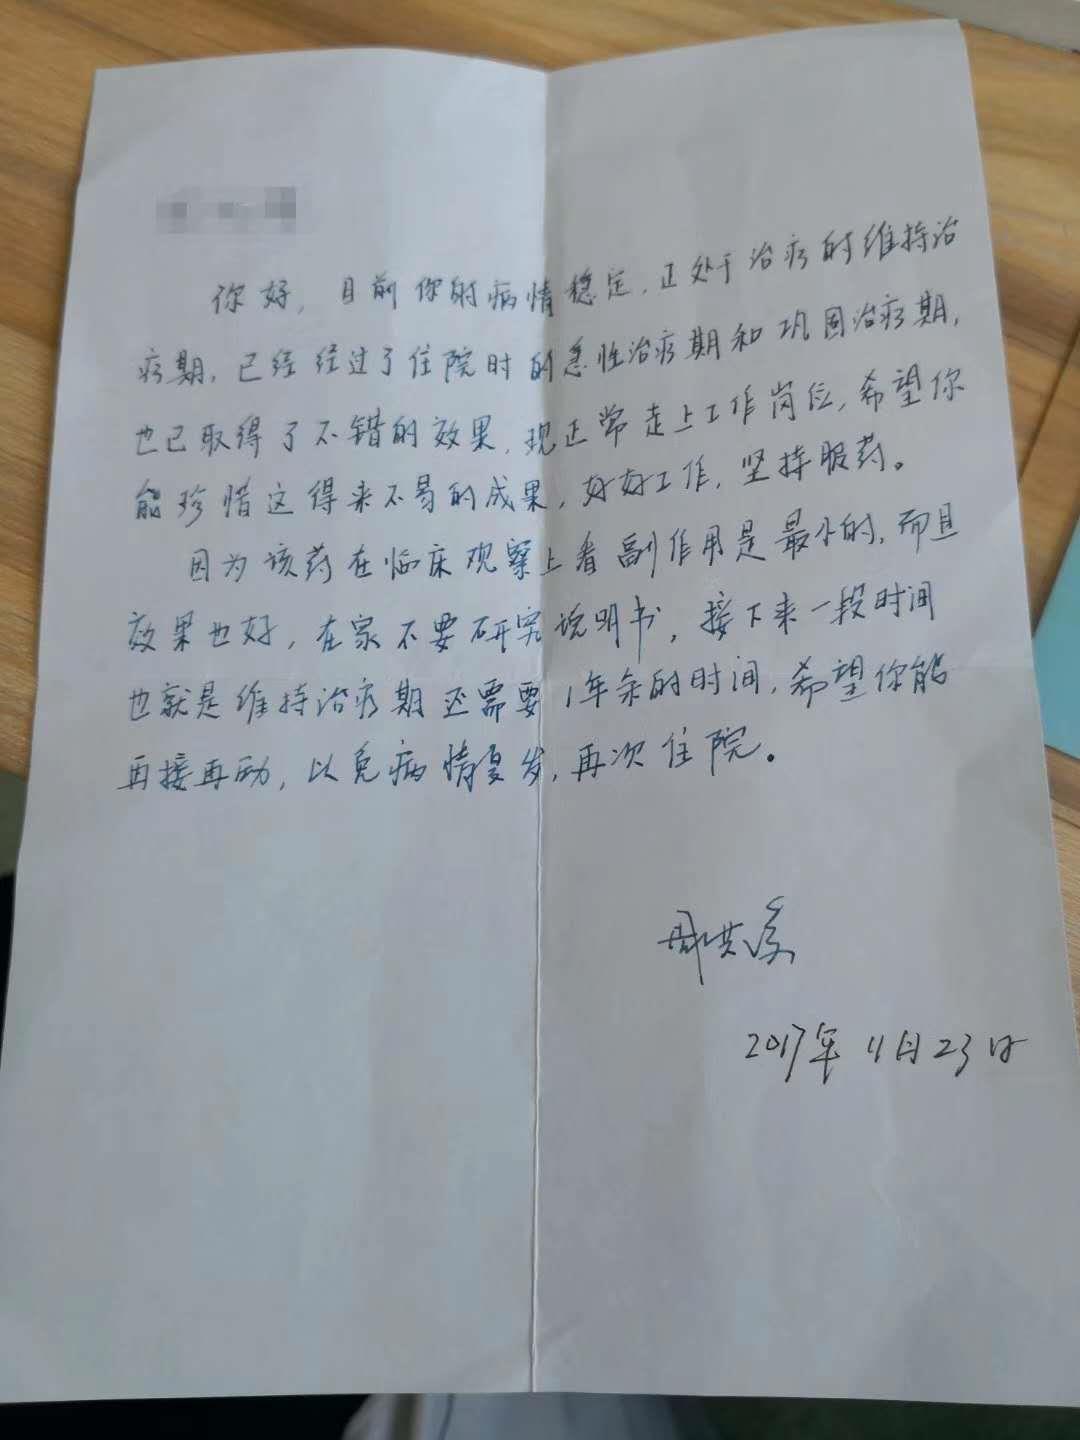 你好，目前你的病情稳定，正处于治疗的维持治
疗期，已经经过了住院时的急性治疗期和巩固治疗期，
也已取得了不错的效果，现正常走上工作岗位，希望你
能珍惜这得来不易的成果，好好工作，坚持服药。
因为该药在临床观察上看副作用是最小的，而且
效果也好，在家不要研究说明书，接下来一段时间
也就是维持治疗期还需要1年余的时间，希望你能
再接再励，以免病情复发，再次住院。
周洪
2017年11月23日